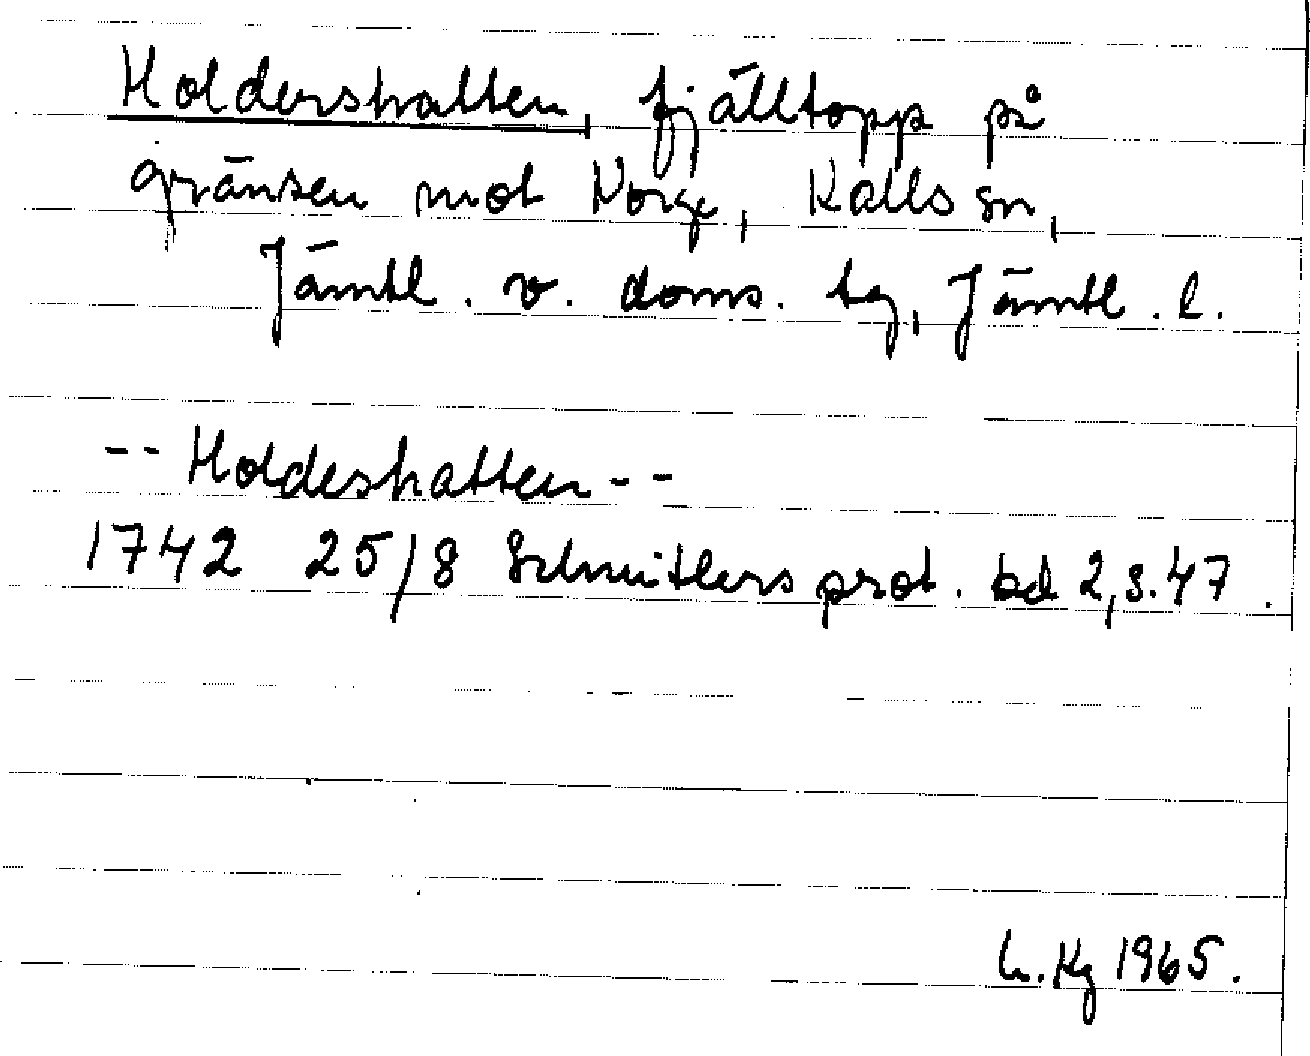 Holdershatten, fjälltopp på
gränsen mot Norge, Kalls sn,
Jämtl. v. doms. tg, Jämtl. l.
-- Holdeshatten --
1742 25/8 Schnitlers prot. bd 2, s. 47.
Kg 1965.